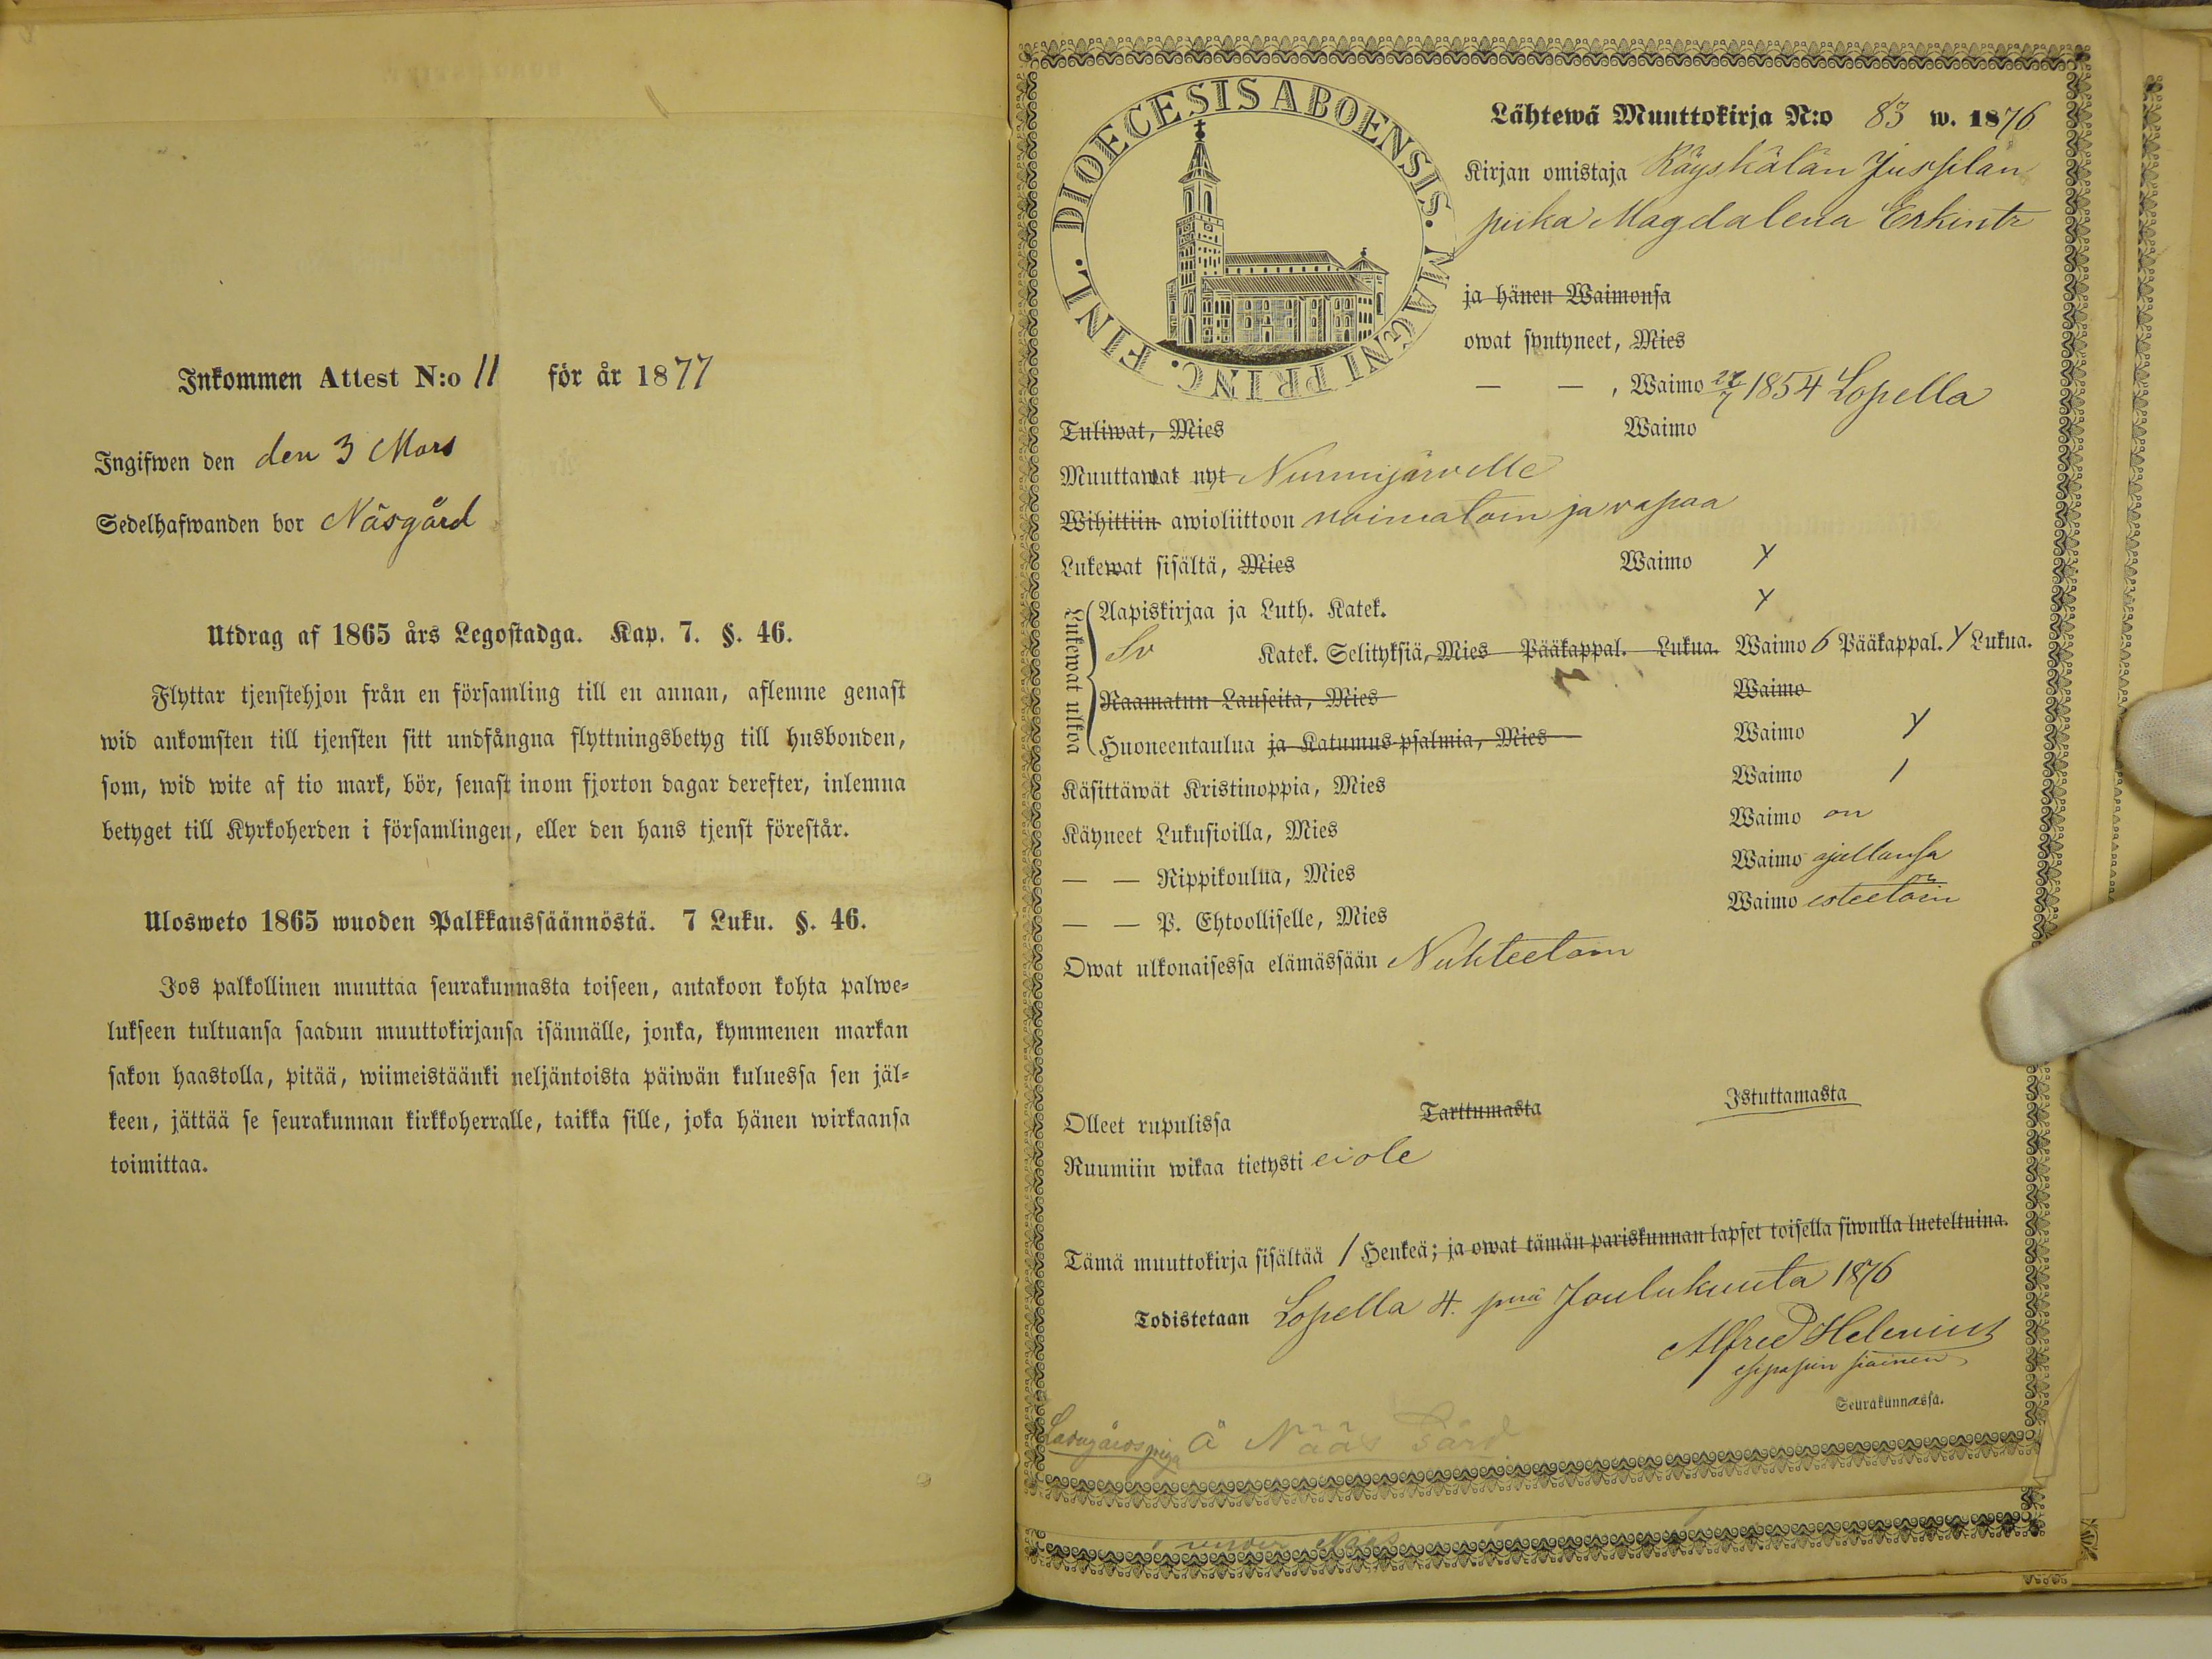 Inkommen Attest N:o 11 för år 1877
Ingifwen den den 3 Mars
Sedelhafwanden bor Näsgård
Utdrag af 1865 års Legostadga. Kap. 7. §. 46.
Flyttar tjenstehjon från en församling till en annan, aflemne genast
wid ankomsten till tjensten sitt undfångna flyttningsbetyg till husbonden,
som, wid wite af tio mark, bör, senast inom fjorton dagar derefter, inlemna
betyget till Kyrkoherden i församlingen, eller den hans tjenst förestår.
Ulosweto 1865 wuoden Palkkaussäännöstä. 7 Luku. §. 46.
Jos palkollinen muuttaa seurakunnasta toiseen, antakoon kohta palwe-
lukseen tultuansa saadun muuttokirjansa isännälle, jonka, kymmenen markan
sakon haastolla, pitää, wiimeistäänki neljäntoista päiwän kuluessa sen jäl-
keen, jättää se seurakunnan kirkkoherralle, taikka sille, joka hänen wirkaansa
toimittaa.
DIOECESIS ABOENSIS. MAGNI PRINC. FINL.
Lähtewä Muuttokirja N:o 83 w. 1876
Kirjan omistaja Räyskälän Jussilan
piika Magdalena Erkintr
ja hänen Waimonsa
owat syntyneet, Mies
— — , Waimo 1854 Lopella
Tuliwat, Mies Waimo
Muuttawat nyt Nurmijärvelle
Wihittiin awioliittoon naimatoin ja vapaa
Lukewat sisältä, Mies Waimo Y
Lukewat ulkoa
Aapiskirjaa ja Luth. Katek. Y
Sv Katek. Selityksiä, Mies Pääkappal. Lukua. Waimo 6 Pääkappal. Y Lukua.
Raamatun Lauseita, Mies Waimo
Huoneentaulua ja Katumus-psalmia, Mies Waimo Y
Käsittäwät Kristinoppia, Mies Waimo 1
Käyneet Lukusioilla, Mies Waimo on
— — Rippikoulua, Mies Waimo ajallansa
— — P. Ehtoolliselle, Mies Waimo esteetöin
Owat ulkonaisessa elämässään Nuhteetoin
Olleet rupulissa Tarttumasta Istuttamasta
Ruumiin wikaa tietysti ei ole
Tämä muuttokirja sisältää 1 Henkeä; ja owat tämän pariskunnan lapset toisella siwulla lueteltuina.
Todistetaan Lopella 4. pnä Joulukuuta 1876
Alfred Helenius
Seurakunnassa.
Ladugårds piga å Nääs Gård
under Näs